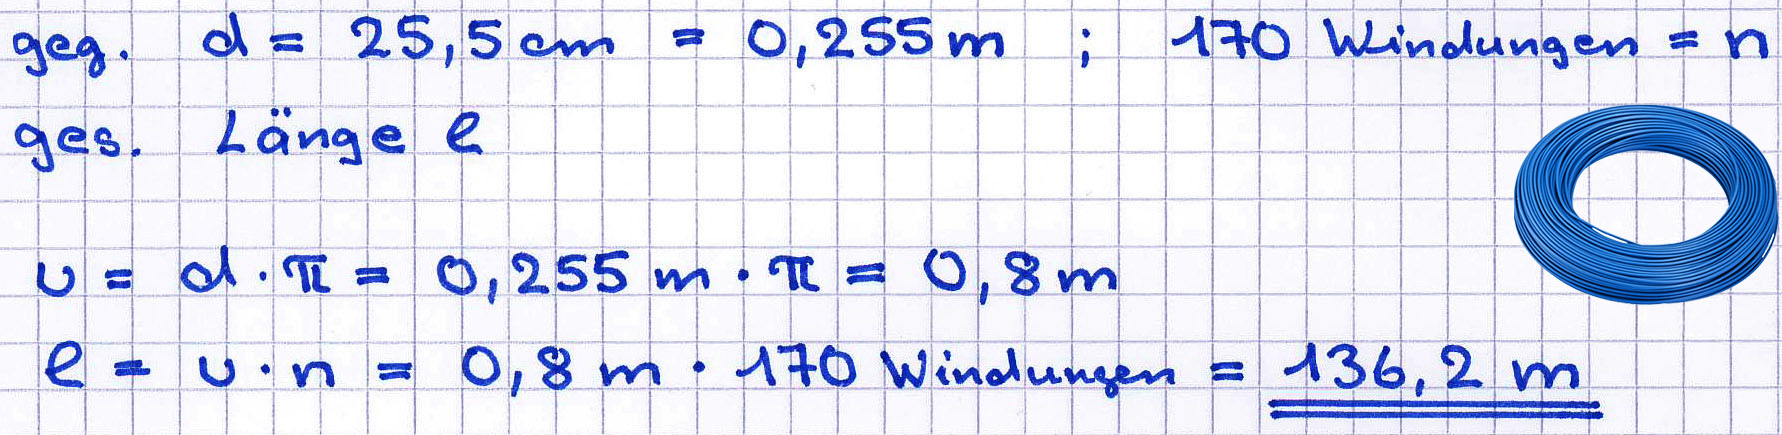 geg. d = 25,5 cm = 0,255 m ; 170 Windungen = n
ges. Länge l
u = d · π = 0,255 m · π = 0,8 m
l = u · n = 0,8 m · 170 Windungen = 136,2 m